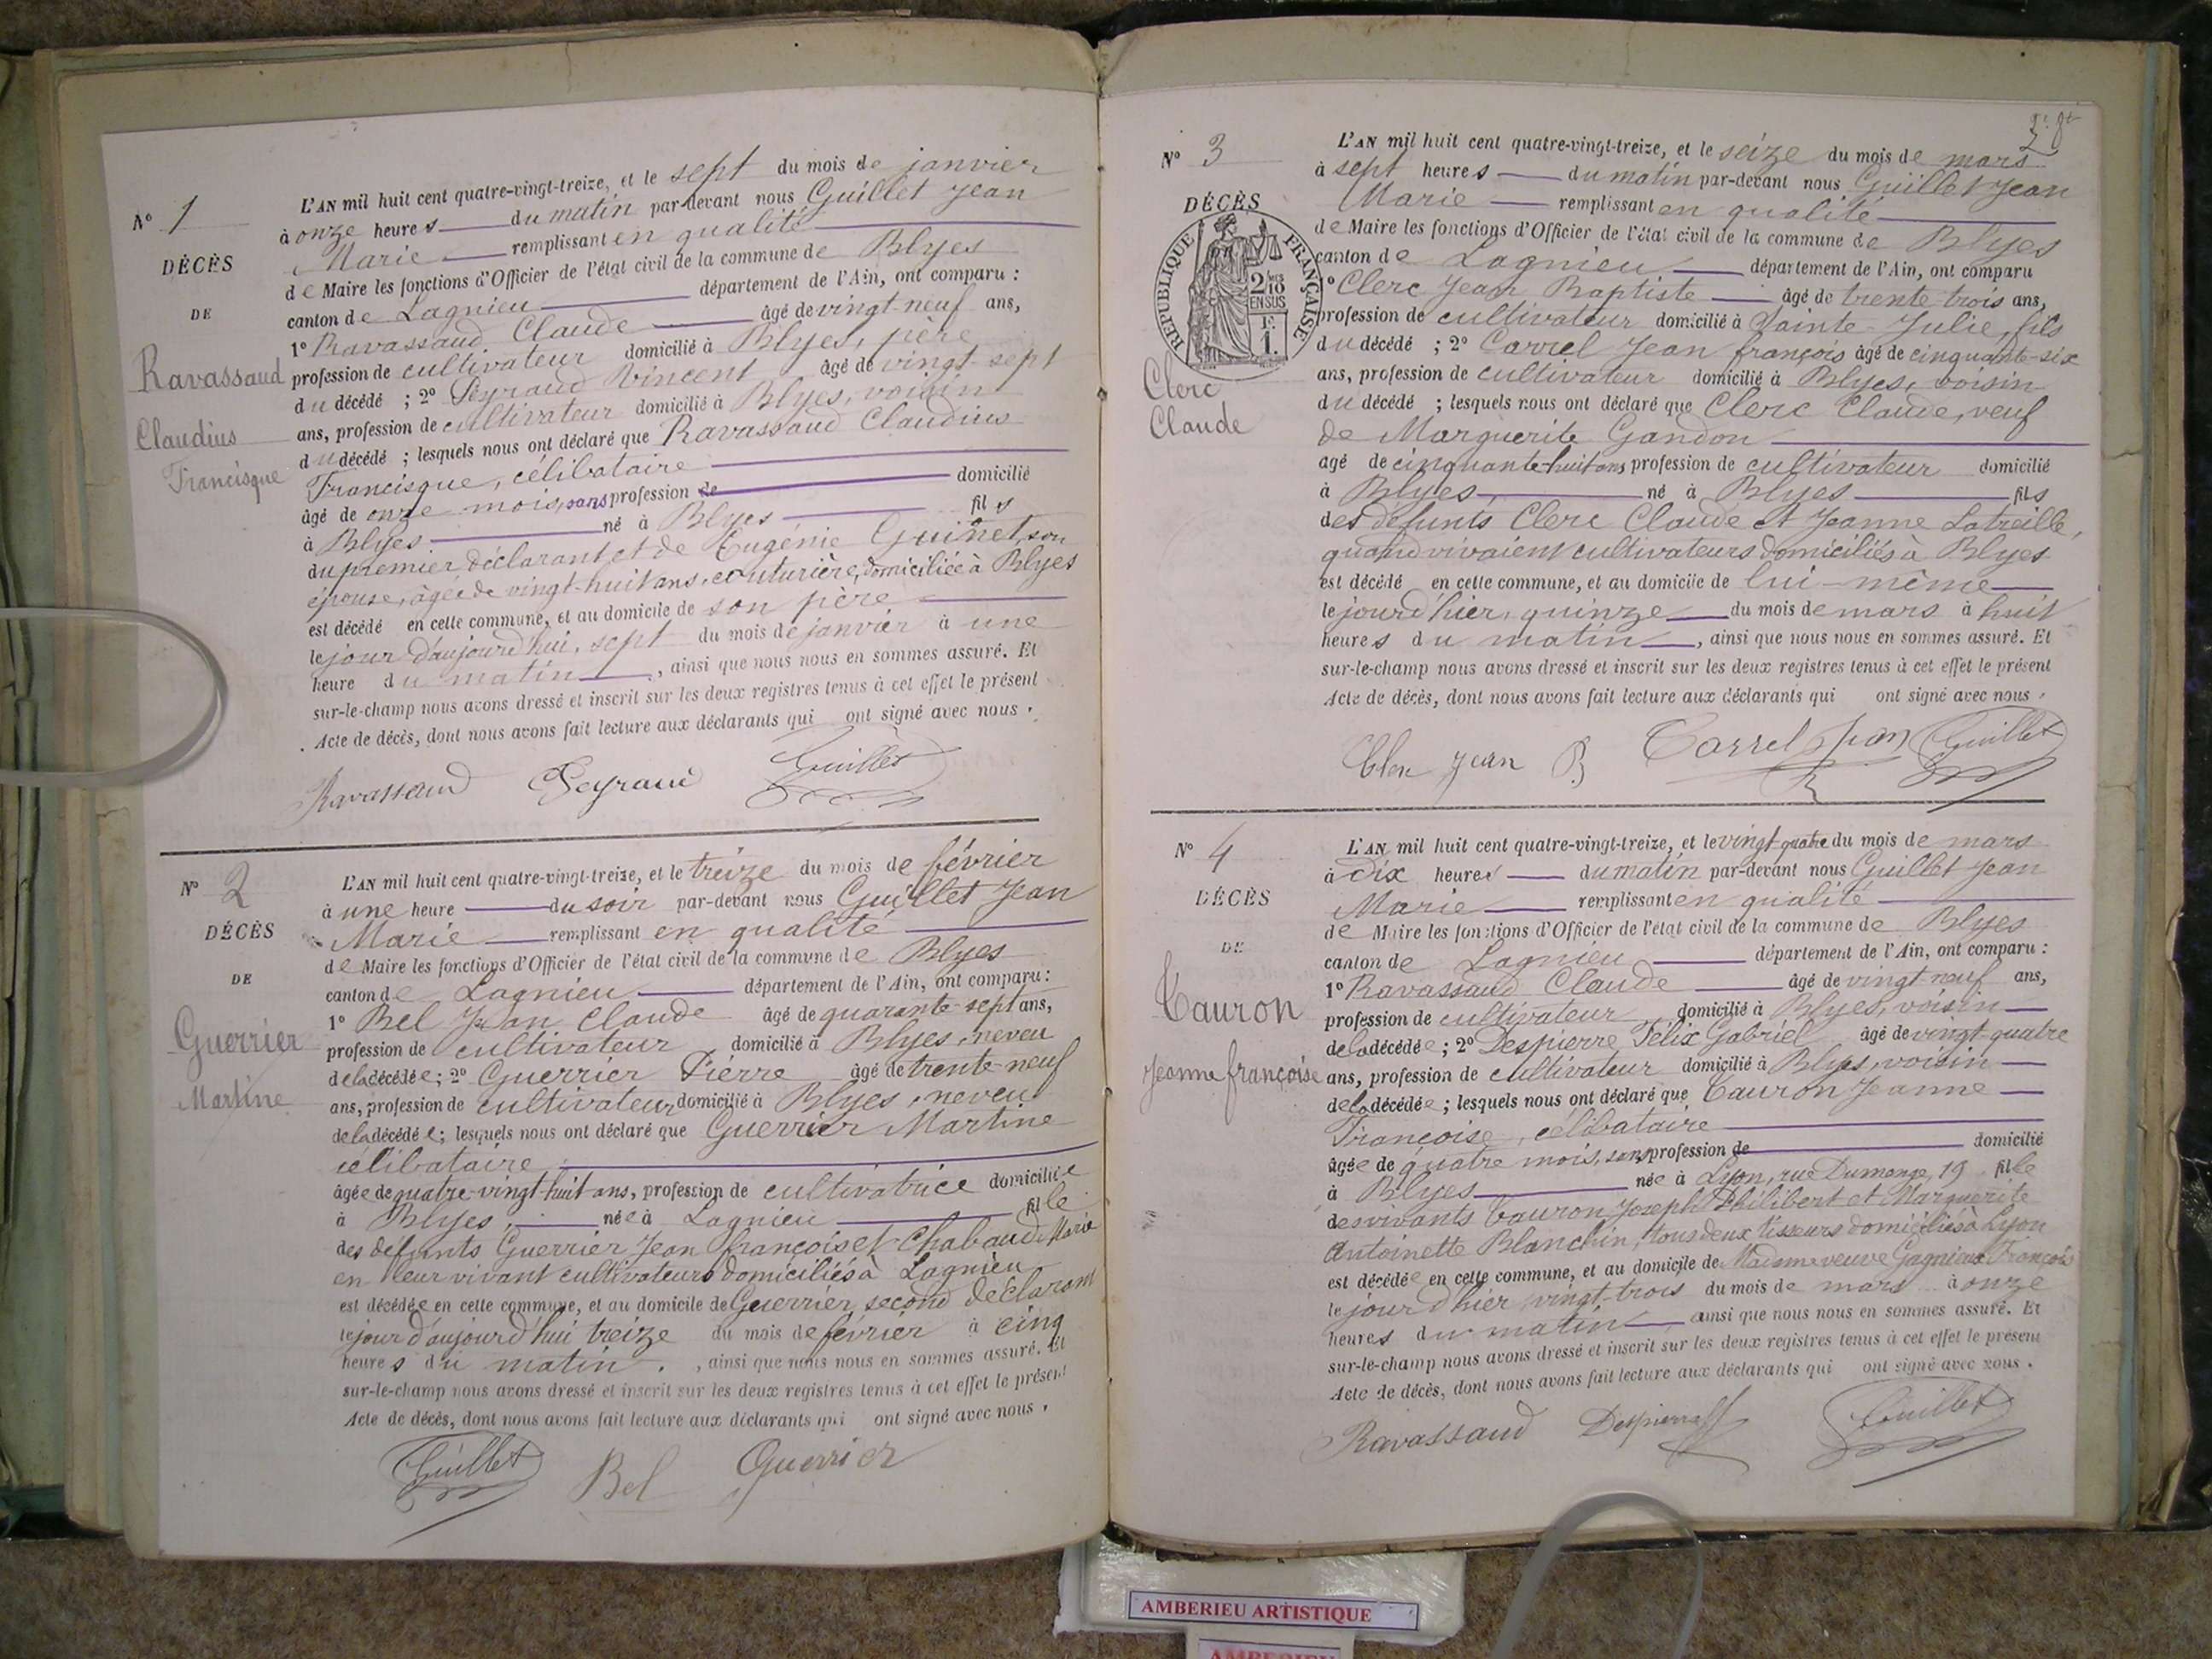 N° 1
DÉCÈS
DE
Ravassaud
Claudius
Francisque
L'AN mil huit cent quatre-vingt-treize, et le sept du mois de janvier
à onze heures du matin par-devant nous Guillet Jean
Marie remplissant en qualité
de Maire les fonctions d'Officier de l'état civil de la commune de Blyes
canton de Lagnieu département de l'Ain, ont comparu :
1° Ravassaud Claude âgé de vingt-neuf ans,
profession de cultivateur domicilié à Blyes, père
du décédé ; 2° Peyraud Vincent âgé de vingt-sept
ans, profession de cultivateur domicilié à Blyes, voisin
du décédé ; lesquels nous ont déclaré que Ravassaud Claudius
Francisque, célibataire
âgé de onze mois, sans profession de domicilié
à Blyes né à Blyes fils
du premier déclarant et de Eugénie Guinet, son
épouse, âgée de vingt-huit ans, couturière, domiciliée à Blyes
est décédé en cette commune, et au domicile de son père
le jour d'aujourd'hui, sept du mois de janvier à une
heure du matin, ainsi que nous nous en sommes assuré. Et
sur-le-champ nous avons dressé et inscrit sur les deux registres tenus à cet effet le présent
Acte de décès, dont nous avons fait lecture aux déclarants qui ont signé avec nous.
Ravassaud Peyraud Guillet
N° 2
DÉCÈS
DE
Guerrier
Martine
L'AN mil huit cent quatre-vingt-treize, et le treize du mois de février
à une heure du soir par-devant nous Guillet Jean
Marie remplissant en qualité
de Maire les fonctions d'Officier de l'état civil de la commune de Blyes
canton de Lagnieu département de l'Ain, ont comparu :
1° Bel Jean Claude âgé de quarante-sept ans,
profession de cultivateur domicilié à Blyes, neveu
de la décédée ; 2° Guerrier Pierre âgé de trente-neuf
ans, profession de cultivateur domicilié à Blyes, neveu
de la décédée ; lesquels nous ont déclaré que Guerrier Martine
célibataire
âgée de quatre-vingt-huit ans, profession de cultivatrice domiciliée
à Blyes, née à Lagnieu fille
des défunts Guerrier Jean françois et Chabaud Marie
en leur vivant cultivateurs domiciliés à Lagnieu
est décédée en cette commune, et au domicile de Guerrier, second déclarant
le jour d'aujourd'hui treize du mois de février à cinq
heures du matin. , ainsi que nous nous en sommes assuré. Et
sur-le-champ nous avons dressé et inscrit sur les deux registres tenus à cet effet le présent
Acte de décès, dont nous avons fait lecture aux déclarants qui ont signé avec nous.
Guillet Bel Guerrier
N° 3
DÉCÈS
REPUBLIQUE FRANÇAISE
2/10
EN SUS
1F.
1.
Clerc
Claude
L'AN mil huit cent quatre-vingt-treize, et le seize du mois de mars
à sept heures du matin par-devant nous Guillet Jean
Marie remplissant en qualité
de Maire les fonctions d'Officier de l'état civil de la commune de Blyes
canton de Lagnieu département de l'Ain, ont comparu
1° Clerc Jean Baptiste âgé de trente-trois ans,
profession de cultivateur domicilié à Sainte-Julie, fils
du décédé ; 2° Carrel Jean françois âgé de cinquante-six
ans, profession de cultivateur domicilié à Blyes, voisin
du décédé ; lesquels nous ont déclaré que Clerc Claude, veuf
de Marguerite Gandon
agé de cinquante-huit ans, profession de cultivateur domicilié
à Blyes, né à Blyes fils
des défunts Clerc Claude et Jeanne Latreille,
quand vivaient cultivateurs domiciliés à Blyes
est décédé en cette commune, et au domicile de lui-même
le jour d'hier, quinze du mois de mars à huit
heures du matin, ainsi que nous nous en sommes assuré. Et
sur-le-champ nous avons dressé et inscrit sur les deux registres tenus à cet effet le présent
Acte de décès, dont nous avons fait lecture aux déclarants qui ont signé avec nous.
Clerc Jean B Carrel Jean Guillet
N° 4
DÉCÈS
DE
Tauron
Jeanne françoise
L'AN mil huit cent quatre-vingt-treize, et le vingt-quatre du mois de mars
à dix heures du matin par-devant nous Guillet Jean
Marie remplissant en qualité
de Maire les fonctions d'Officier de l'état civil de la commune de Blyes
canton de Lagnieu département de l'Ain, ont comparu :
1° Ravassaud Claude âgé de vingt-neuf ans,
profession de cultivateur domicilié à Blyes, voisin
de la décédée ; 2° Despierre Félix Gabriel âgé de vingt-quatre
ans, profession de cultivateur domicilié à Blyes, voisin
de la décédée ; lesquels nous ont déclaré que Tauron Jeanne
Françoise, célibataire
âgée de quatre mois, sans profession de domicilié
à Blyes née à Lyon, rue Dumenge, 19 fille
des vivants Tauron Joseph Philibert et Marguerite
Antoinette Blanchin, tous deux tisseurs domiciliés à Lyon
est décédée en cette commune, et au domicile de Madame veuve Gagnieux François
le jour d'hier vingt-trois du mois de mars à onze
heures du matin ainsi que nous nous en sommes assuré. Et
sur-le-champ nous avons dressé et inscrit sur les deux registres tenus à cet effet le présent
Acte de décès, dont nous avons fait lecture aux déclarants qui ont signé avec nous.
Ravassaud Despierre Guillet
AMBERIEU ARTISTIQUE
AMBERIEU